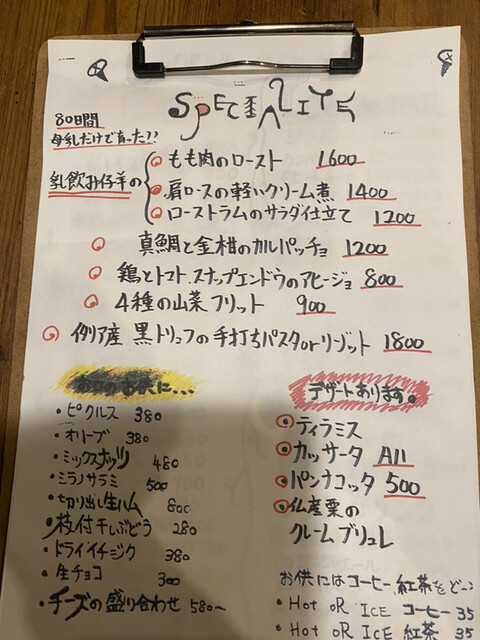 SPECIALITE
80日間
母乳だけで育った!?
乳飲み仔羊の
もも肉のロースト 1600
肩ロースの軽いクリーム煮 1400
ローストラムのサラダ仕立て 1200
真鯛と金柑のカルパッチョ 1200
鶏とトマト、スナップエンドウのアヒージョ 800
4種の山菜フリット 900
イタリア産 黒トリュフの手打ちパスタorリゾット 1800
お口のお供に...
・ピクルス 380
・オリーブ 380
・ミックスナッツ 480
・ミラノサラミ 500
・切り出し生ハム 800
・枝付干しぶどう 280
・ドライイチジク 380
・生チョコ 300
・チーズの盛り合わせ 580~
デザートあります。
ティラミス
カッサータ All
パンナコッタ 500
仏産栗の
クレームブリュレ
お供にはコーヒー、紅茶をどー
・Hot oR ICE コーヒー 35
・Hot oR ICE 紅茶 35